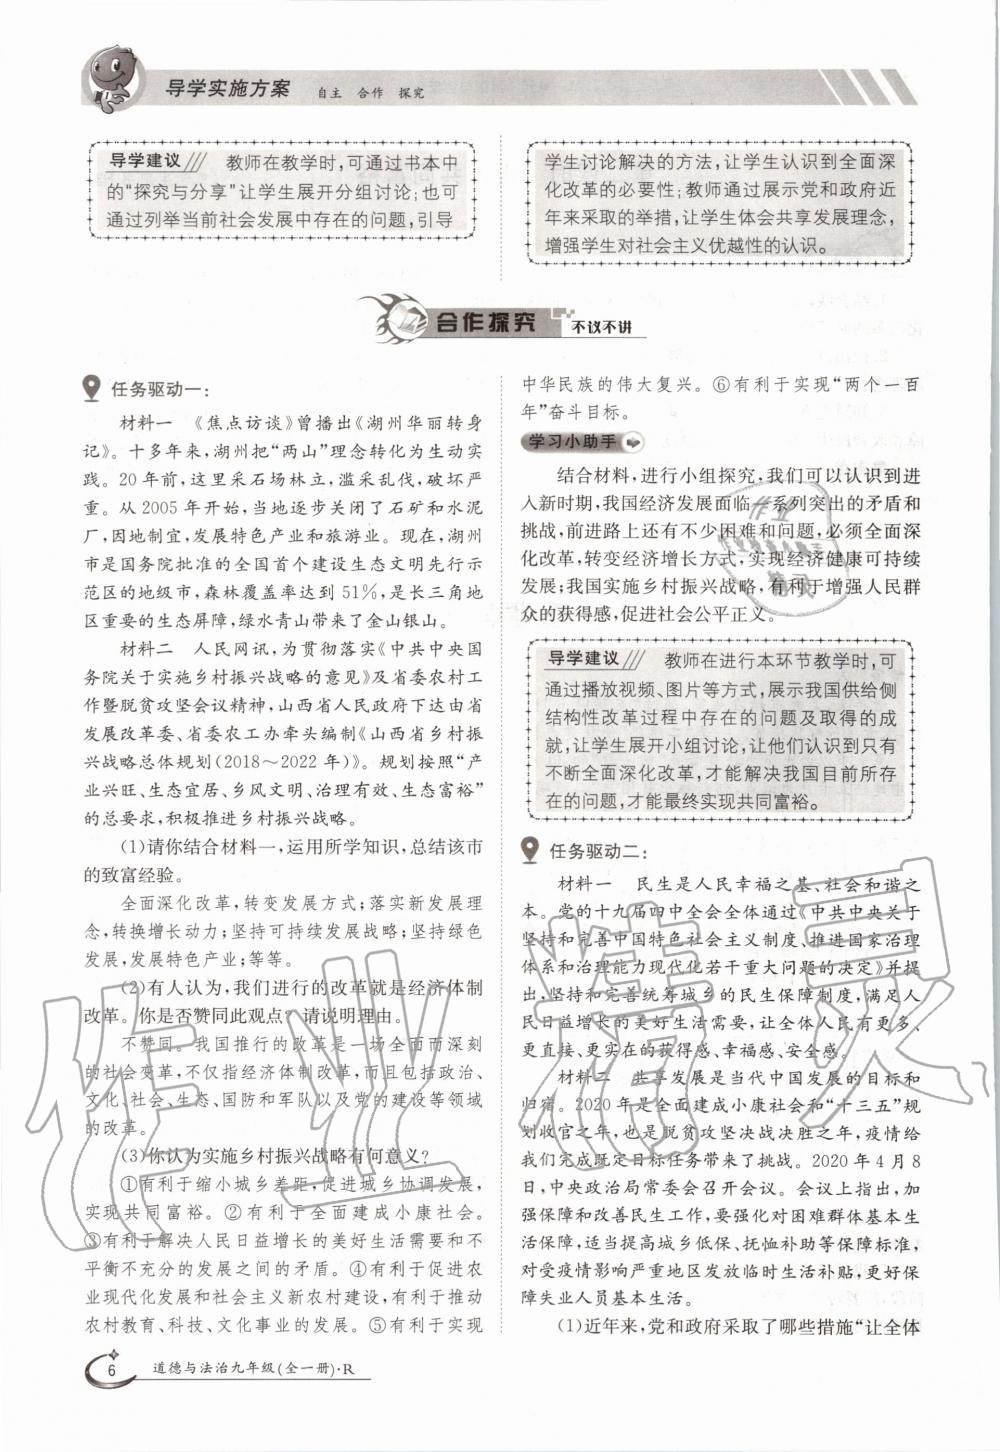 导学实施方案 自主 合作 探究
导学建议 教师在教学时,可通过书本中
的“探究与分享”让学生展开分组讨论;也可
通过列举当前社会发展中存在的问题,引导
学生讨论解决的方法,让学生认识到全面深
化改革的必要性;教师通过展示党和政府近
年来采取的举措,让学生体会共享发展理念,
增强学生对社会主义优越性的认识。
合作探究 不议不讲
任务驱动一:
材料一 《焦点访谈》曾播出《湖州华丽转身
记》。十多年来,湖州把“两山”理念转化为生动实
践。20 年前,这里采石场林立,滥采乱伐,破坏严
重。从 2005 年开始,当地逐步关闭了石矿和水泥
厂,因地制宜,发展特色产业和旅游业。现在,湖州
市是国务院批准的全国首个建设生态文明先行示
范区的地级市,森林覆盖率达到 51%,是长三角地
区重要的生态屏障,绿水青山带来了金山银山。
材料二 人民网讯,为贯彻落实《中共中央国
务院关于实施乡村振兴战略的意见》及省委农村工
作暨脱贫攻坚会议精神,山西省人民政府下达由省
发展改革委、省委农工办牵头编制《山西省乡村振
兴战略总体规划(2018～2022 年)》。规划按照“产
业兴旺、生态宜居、乡风文明、治理有效、生态富裕”
的总要求,积极推进乡村振兴战略。
(1)请你结合材料一,运用所学知识,总结该市
的致富经验。
全面深化改革,转变发展方式;落实新发展理
念,转换增长动力;坚持可持续发展战略;坚持绿色
发展,发展特色产业;等等。
(2)有人认为,我们进行的改革就是经济体制
改革。你是否赞同此观点?请说明理由。
不赞同。我国推行的改革是一场全面而深刻
的社会变革,不仅指经济体制改革,而且包括政治、
文化、社会、生态、国防和军队以及党的建设等领域
的改革。
(3)你认为实施乡村振兴战略有何意义?
①有利于缩小城乡差距,促进城乡协调发展,
实现共同富裕。②有利于全面建成小康社会。
③有利于解决人民日益增长的美好生活需要和不
平衡不充分的发展之间的矛盾。④有利于促进农
业现代化发展和社会主义新农村建设,有利于推动
农村教育、科技、文化事业的发展。⑤有利于实现
中华民族的伟大复兴。⑥有利于实现“两个一百
年”奋斗目标。
学习小助手
结合材料,进行小组探究,我们可以认识到进
入新时期,我国经济发展面临一系列突出的矛盾和
挑战,前进路上还有不少困难和问题,必须全面深
化改革,转变经济增长方式,实现经济健康可持续
发展;我国实施乡村振兴战略,有利于增强人民群
众的获得感,促进社会公平正义。
导学建议 教师在进行本环节教学时,可
通过播放视频、图片等方式,展示我国供给侧
结构性改革过程中存在的问题及取得的成
就,让学生展开小组讨论,让他们认识到只有
不断全面深化改革,才能解决我国目前所存
在的问题,才能最终实现共同富裕。
任务驱动二:
材料一 民生是人民幸福之基、社会和谐之
本。党的十九届四中全会全体通过《中共中央关于
坚持和完善中国特色社会主义制度、推进国家治理
体系和治理能力现代化若干重大问题的决定》并提
出,坚持和完善统筹城乡的民生保障制度,满足人
民日益增长的美好生活需要,让全体人民有更多、
更直接、更实在的获得感、幸福感、安全感。
材料二 共享发展是当代中国发展的目标和
归宿。2020 年是全面建成小康社会和“十三五”规
划收官之年,也是脱贫攻坚决战决胜之年,疫情给
我们完成既定目标任务带来了挑战。2020 年 4 月 8
日,中央政治局常委会召开会议。会议上指出,加
强保障和改善民生工作,要强化对困难群体基本生
活保障,适当提高城乡低保、抚恤补助等保障标准,
对受疫情影响严重地区发放临时生活补贴,更好保
障失业人员基本生活。
(1)近年来,党和政府采取了哪些措施“让全体
6 道德与法治九年级(全一册)·R
作业精灵